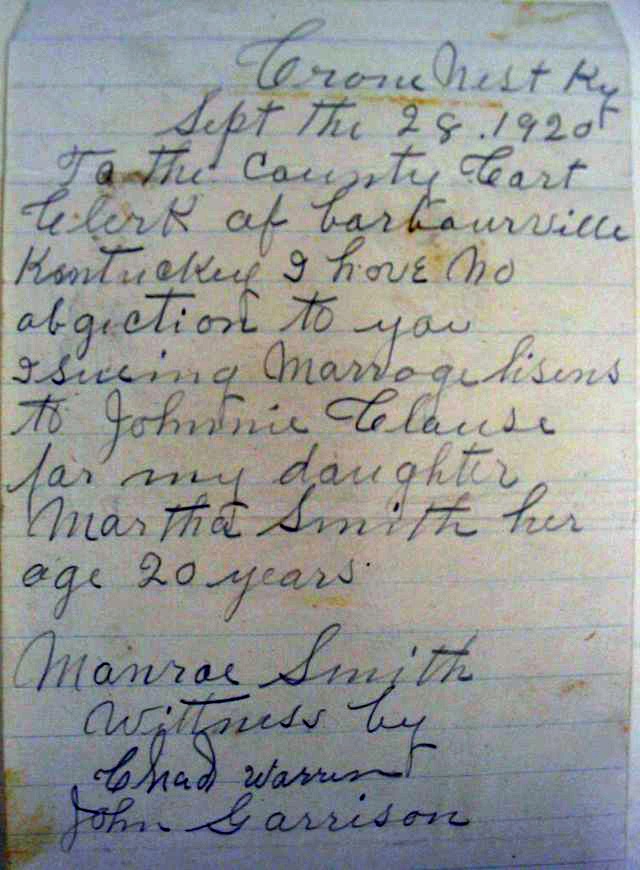 Crone Nest Ky
Sept the 28. 1920
To the County Cort
Clerk of barbourville
Kentuckey I have No
obgiction to you
Isuing Marrage lisens
to Johnnie Clause
for my daughter
Martha Smith her
age 20 years.
Manroe Smith
Wittness by
Chad Warren
John Garrison